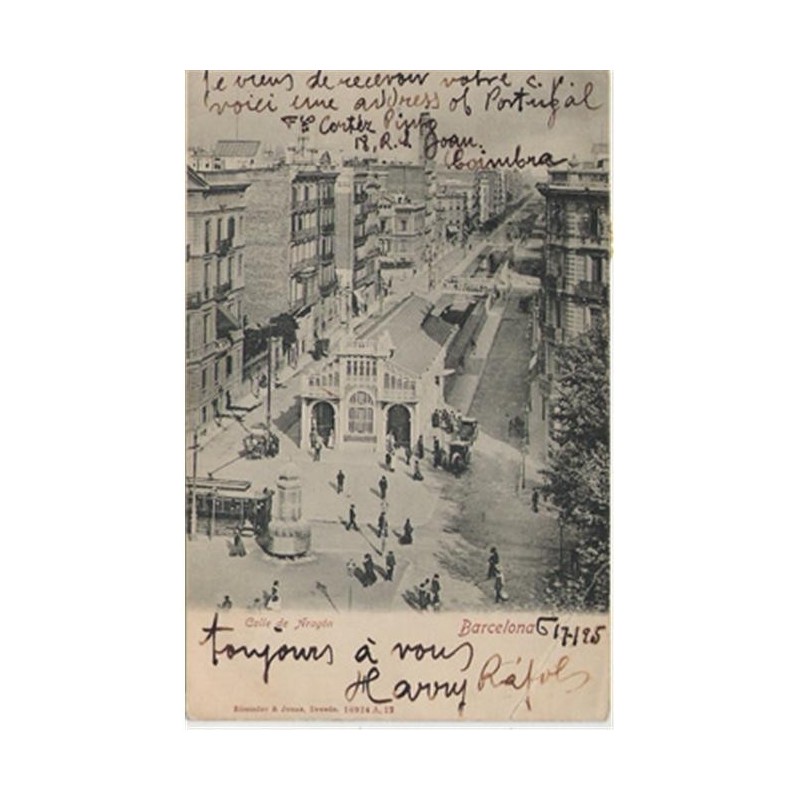 Je viens de recevoir votre c.
voici une address of Portugal
Cortéz Pinto
18, R. Joan.
Coimbra
Calle de Aragón
Barcelona
toujours à vous
Harry Ráfols
Römmler & Jonas, Dresde. 16924 A. 12